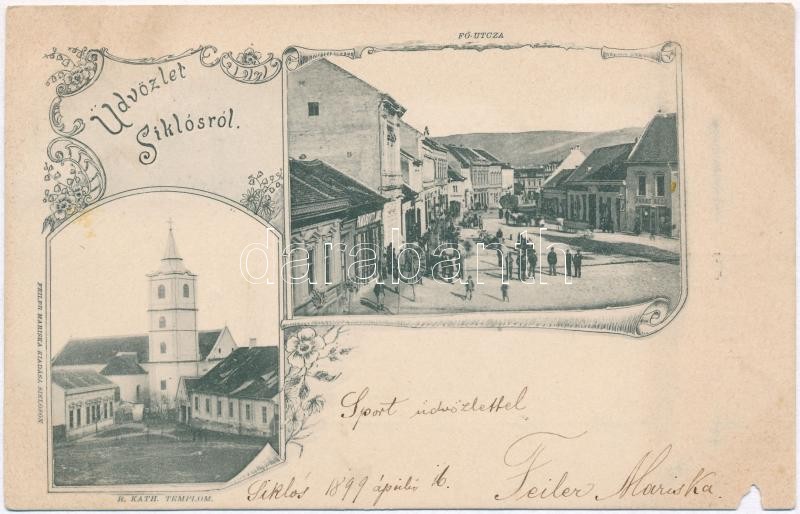 FŐ-UTCZA
Üdvözlet
Siklósról.
darabanth.com
FEILER MARISKA KIADÁSA SIKLÓSON
R. KATH. TEMPLOM.
Sport üdvözlettel
Siklós 1899 április 16.
Feiler Mariska.